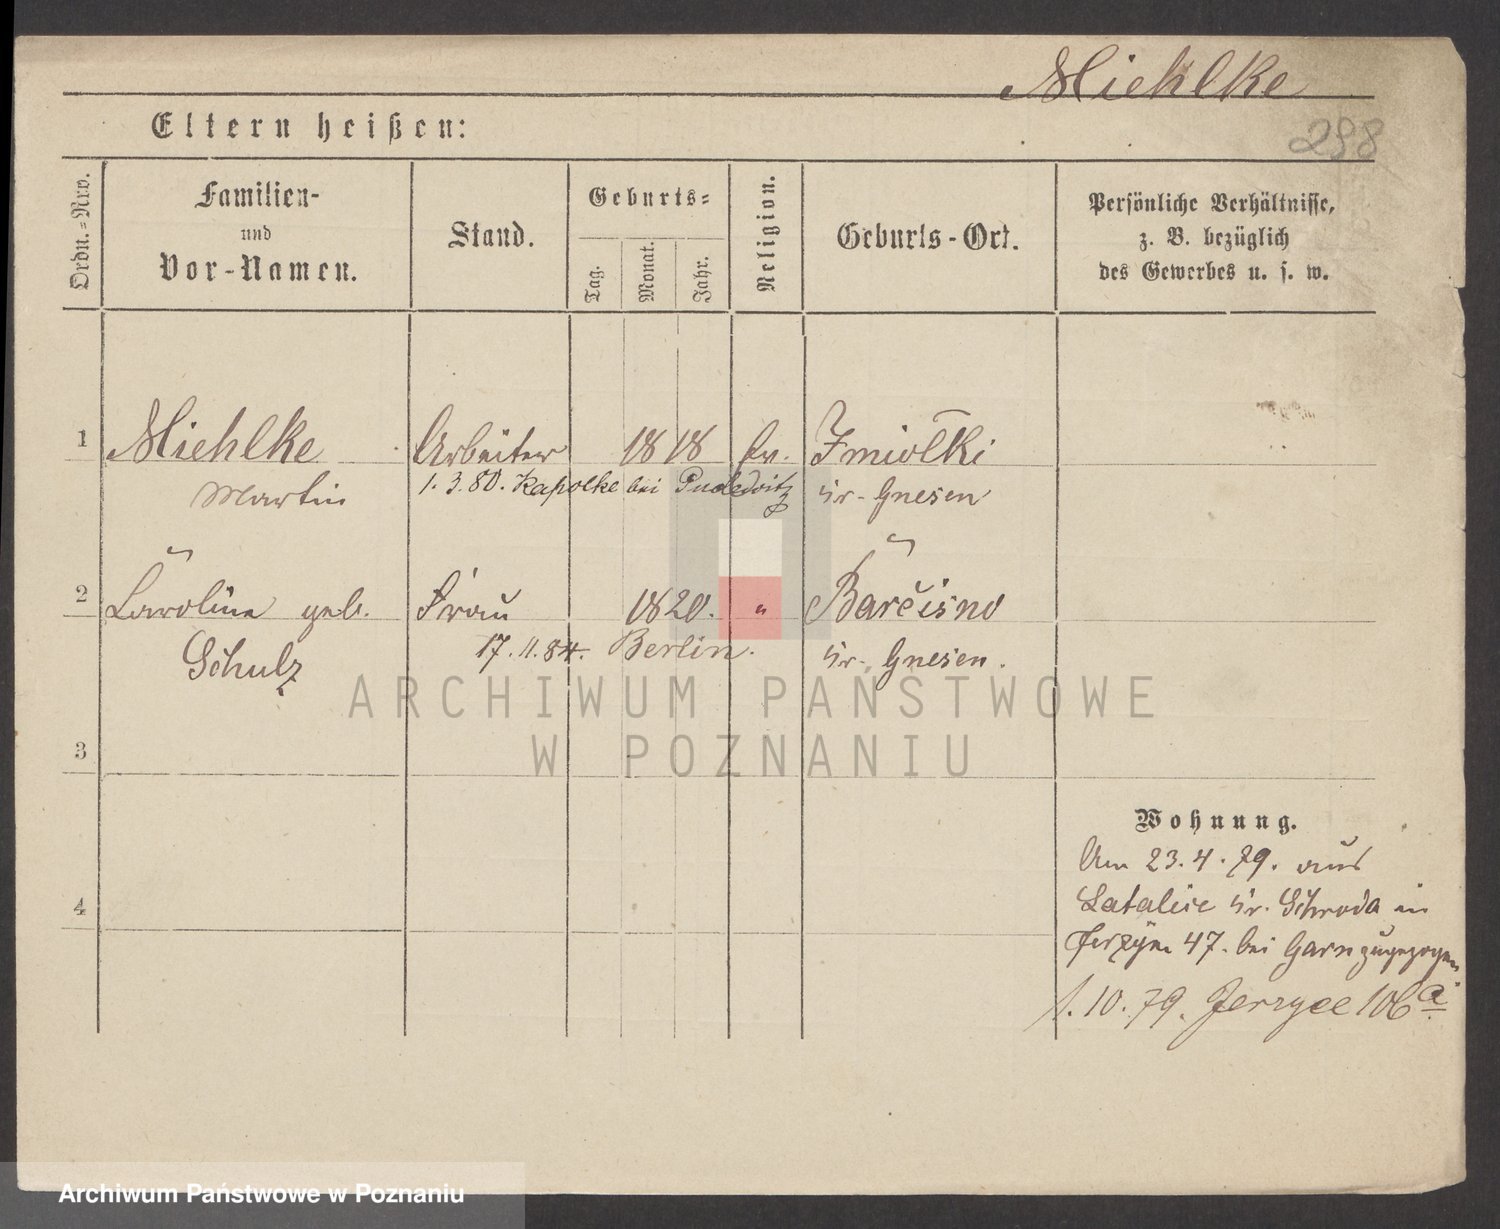 Miehlke
298
Eltern heißen:
Ordn.=Nro.
Familien-
und
Vor-Namen.
Stand.
Geburts=
Tag.
Monat.
Jahr.
Religion.
Geburts-Ort.
Persönliche Verhältnisse,
z. B. bezüglich
des Gewerbes u. s. w.
1 Miehlke Arbeiter 1818 Ev.
Martin 1.3.80. Kapolke bei Pudewitz Kr. Gnesen
2 Caroline geb. Frau 1820. " Barčisno
Schulz 17.11.84. Berlin. Kr. Gnesen.
ARCHIWUM PAŃSTWOWE
W POZNANIU
3
Wohnung.
Am 23.4.79. aus
Latalice Kr. Schroda in
4
47. bei Garn zugezogen.
1.10.79. Jerzyce 106a
Archiwum Państwowe w Poznaniu